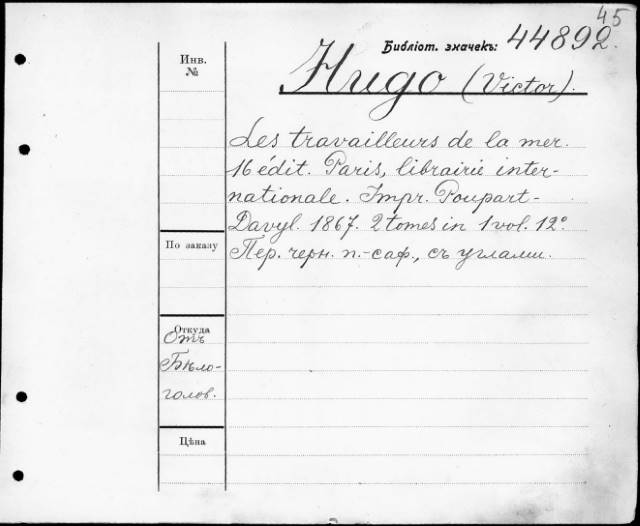 45
Библіот. значекъ: 44892.
Инв.
№
Hugo (Victor).
Les travailleurs de la mer.
16 édit. Paris, librairie inter-
nationale. Impr. Poupart-
Davyl. 1867. 2 tomes in 1 vol. 12°
По заказу
Пер. черн. п.-саф., съ углами.
Откуда
Отъ
Бѣло-
голов.
Цѣна